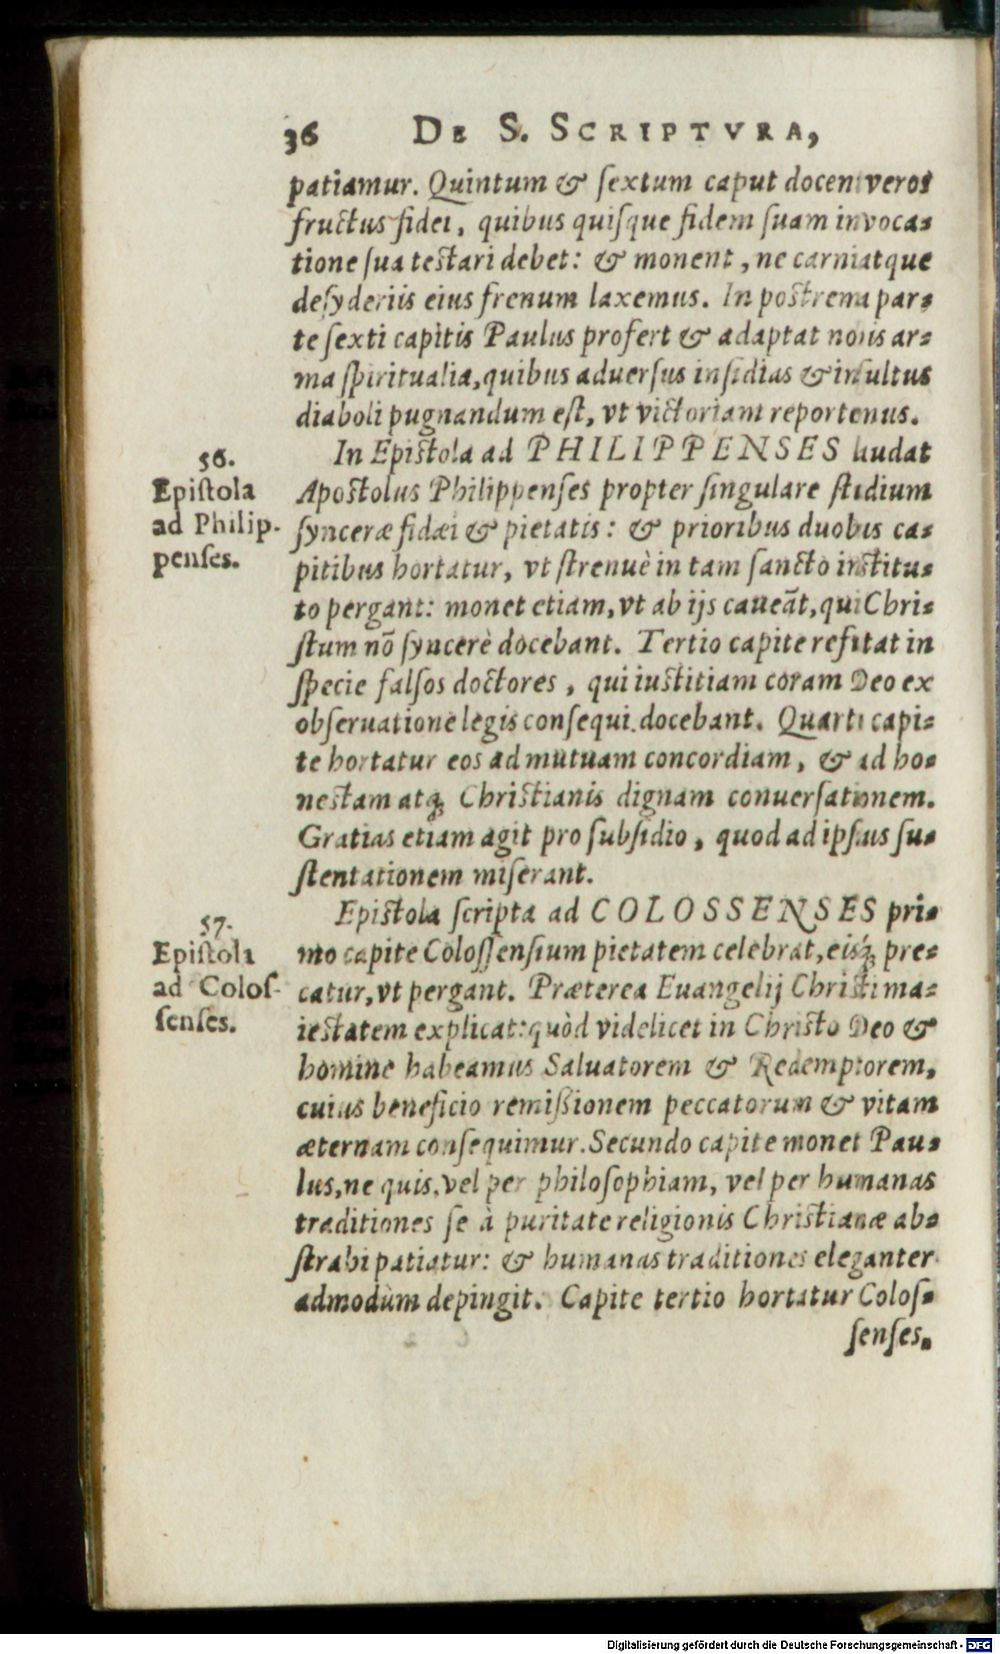 36 DE S. SCRIPTVRA,
patiamur. Quintum & ſextum caput docent veros
fructus fidei, quibus quiſque fidem ſuam invoca=
tione ſua testari debet: & monent, ne carni atque
deſyderiis eius frenum laxemus. In postrema par=
te ſexti capitis Paulus profert & adaptat nobis ar=
ma ſpiritualia, quibus aduerſus inſidias & inſultus
diaboli pugnandum eſt, vt victoriam reportemus.
56.
Epiſtola
ad Philip-
penſes.
In Epistola ad PHILIPPENSES laudat
Apostolus Philippenſes propter ſingulare ſtudium
ſynceræ fidæi & pietatis: & prioribus duobus ca=
pitibus hortatur, vt ſtrenuè in tam ſancto institu=
to pergant: monet etiam, vt ab ijs caueãt, qui Chri=
ſtum nõ ſyncerè docebant. Tertio capite refutat in
ſpecie falſos doctores, qui iustitiam coram Deo ex
obſeruatione legis conſequi docebant. Quarti capi=
te hortatur eos ad mutuam concordiam, & ad ho=
nestam atq; Christianis dignam conuerſationem.
Gratias etiam agit pro ſubſidio, quod ad ipſius ſu=
ſtentationem miſerant.
57.
Epiſtola
ad Coloſ-
ſenſes.
Epistola ſcripta ad COLOSSENSES pri=
mo capite Coloſſenſium pietatem celebrat, eisq́; pre=
catur, vt pergant. Præterea Euangelij Christi ma=
iestatem explicat: quòd videlicet in Christo Deo &
homine habeamus Saluatorem & Redemptorem,
cuius beneficio remißionem peccatorum & vitam
æternam conſequimur. Secundo capite monet Pau=
lus, ne quis, vel per philoſophiam, vel per humanas
traditiones ſe à puritate religionis Christianæ ab=
ſtrahi patiatur: & humanas traditiones eleganter
admodùm depingit. Capite tertio hortatur Coloſ=
ſenſes.
Digitalisierung gefördert durch die Deutsche Forschungsgemeinschaft - DFG